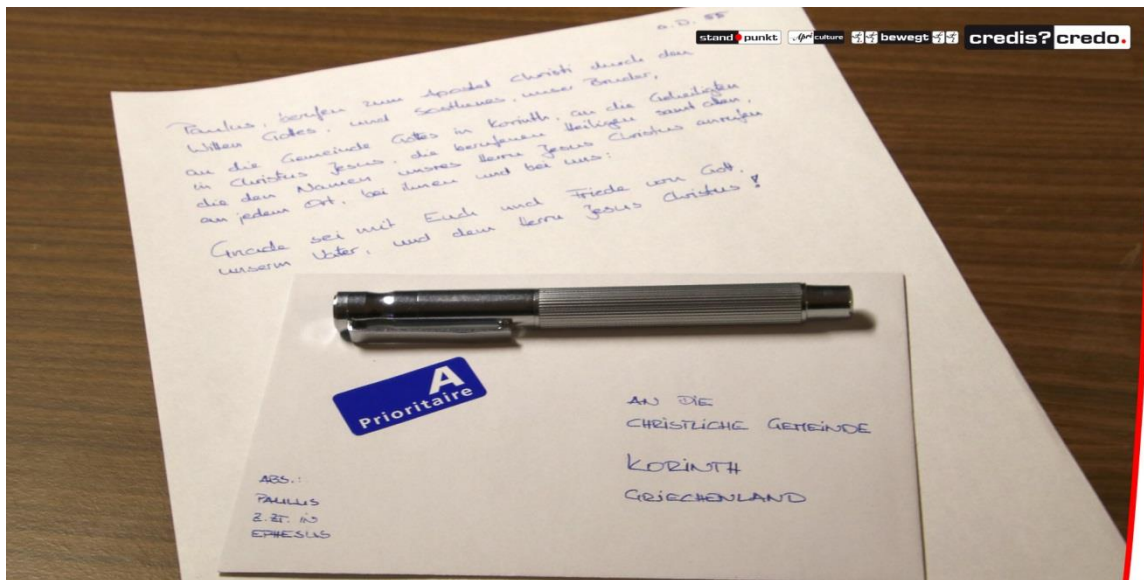 a.D. 55
stand punkt
culture
bewegt
credis? credo.
Paulus, berufen zum Apostel Christi durch den
Willen Gottes, und Sosthenes, unser Bruder,
an die Gemeinde Gottes in Korinth, an die Geheiligten
in Christus Jesus, die berufenen Heiligen samt allen,
die den Namen unsres Herrn Jesus Christus anrufen
an jedem Ort, bei ihnen und bei uns:
Gnade sei mit Euch und Friede von Gott,
unserm Vater, und dem Herrn Jesus Christus!
A
Prioritaire
AN DIE
CHRISTLICHE GEMEINDE
KORINTH
GRIECHENLAND
ABS.:
PAULUS
Z.ZT. IN
EPHESUS